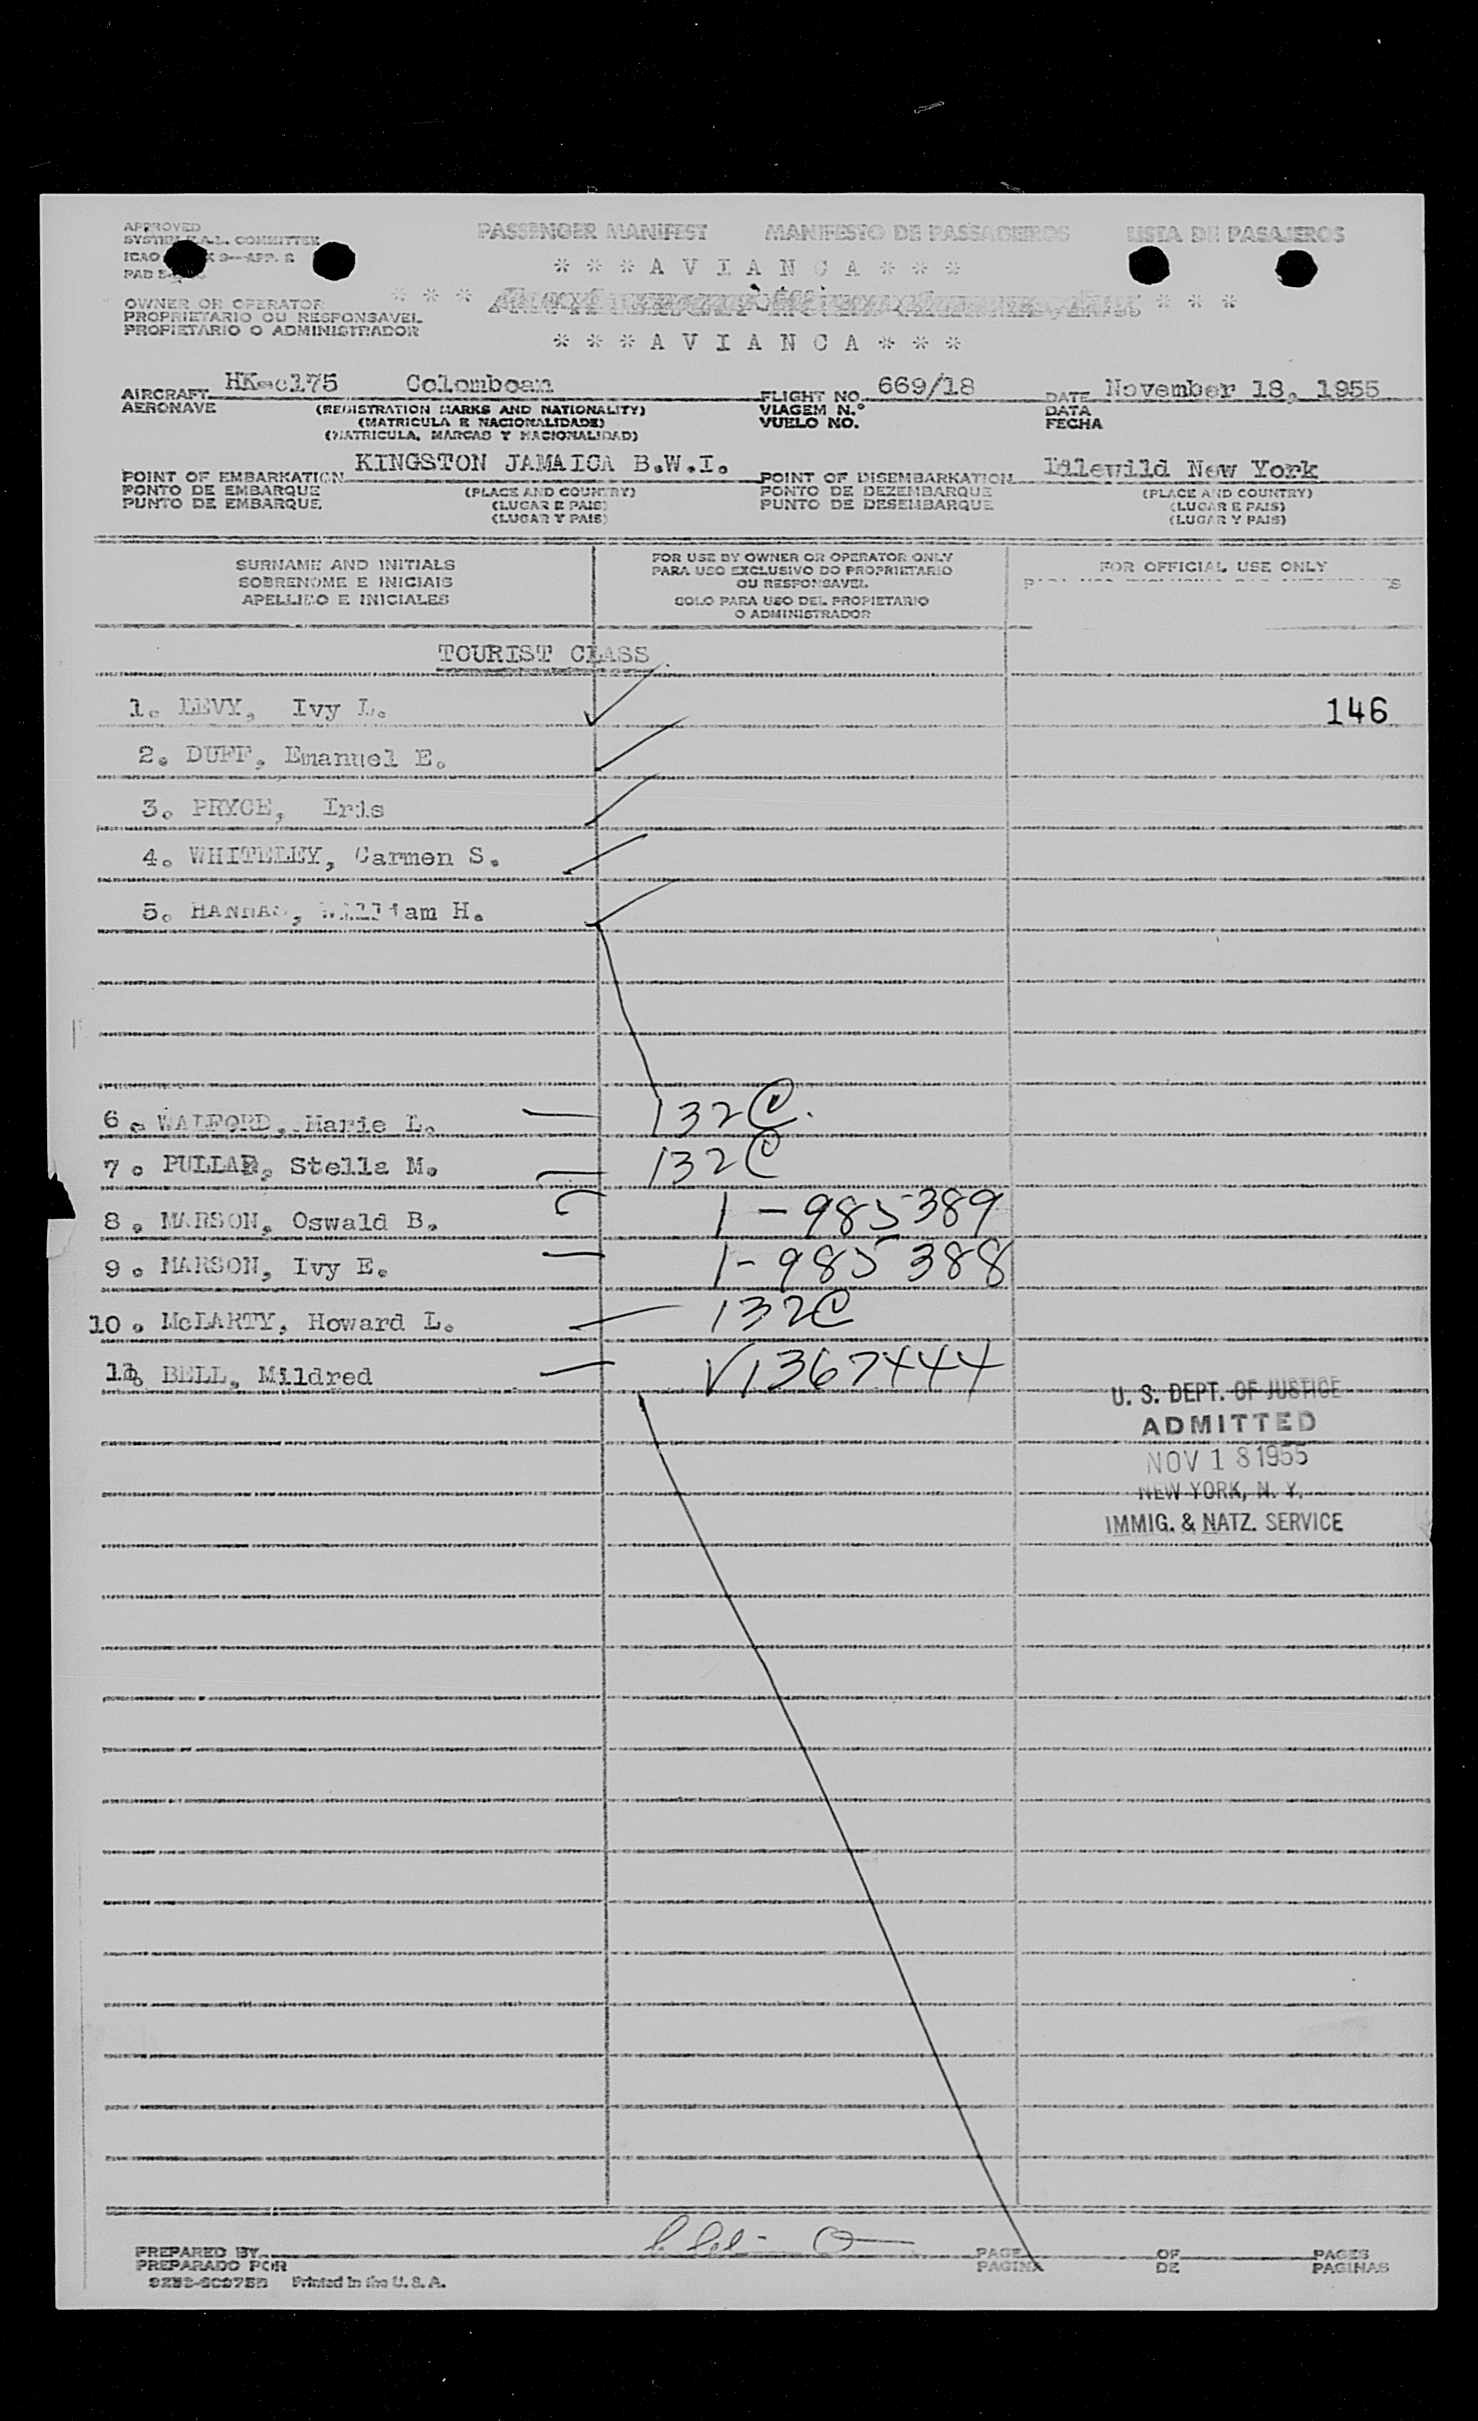 APPROVED PASSENGER MANIFEST MANIFESTO DE PASSAGEIROS LISTA DE PASAJEROS
COMMITTEE
ICAO 9—APP. 2
PAD
* * * A V I A N C A * * *
OWNER OR OPERATOR * * * * * *
PROPRIETARIO OU RESPONSAVEL
PROPIETARIO O ADMINISTRADOR
* * * A V I A N C A * * *
AIRCRAFT HK-c175 Colomboan FLIGHT NO. 669/18 DATE November 18, 1955
AERONAVE (REGISTRATION MARKS AND NATIONALITY) VIAGEM N.° DATA
(MATRICULA E NACIONALIDADE) VUELO NO. FECHA
(MATRICULA, MARCAS Y NACIONALIDAD)
POINT OF EMBARKATION KINGSTON JAMAICA B.W.I. POINT OF DISEMBARKATION Idlewild New York
PONTO DE EMBARQUE (PLACE AND COUNTRY) PONTO DE DEZEMBARQUE (PLACE AND COUNTRY)
PUNTO DE EMBARQUE (LUGAR E PAIS) PUNTO DE DESEMBARQUE (LUGAR E PAIS)
(LUGAR Y PAIS) (LUGAR Y PAIS)
SURNAME AND INITIALS FOR USE BY OWNER OR OPERATOR ONLY FOR OFFICIAL USE ONLY
SOBRENOME E INICIAIS PARA USO EXCLUSIVO DO PROPRIETARIO
OU RESPONSAVEL
APELLIDO E INICIALES SOLO PARA USO DEL PROPIETARIO
O ADMINISTRADOR
TOURIST CLASS
1. LEVY, Ivy L. 146
2. DUFF, Emanuel E.
3. PRYCE, Iris
4. WHITELEY, Carmen S.
5. William H.
6. WALFORD, Marie L. — 132C.
7. PULLAR, Stella M. — 132C
8. MARSON, Oswald B. 1-985389
9. MARSON, Ivy E. — 1-985388
10. McLARTY, Howard L. — 132C
11. BELL, Mildred — V1367444
U. S. DEPT. OF JUSTICE
ADMITTED
NOV 18 1955
NEW YORK, N. Y.
IMMIG. & NATZ. SERVICE
PREPARED BY PAGE OF PAGES
PREPARADO POR PAGINA DE PAGINAS
Printed in the U. S. A.